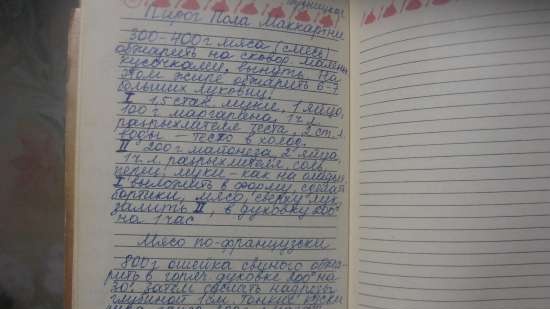 Пирог Пола Маккартни
300-400 г мяса (смесь)
обжарить на сковор. малень
кусочками, вынуть. На
этом жире обжарить 6-7
больших луковиц!
I 1,5 стак муки, 1 яйцо,
100 г маргарина, 1 ч.л.
разрыхлителя теста, 2 ст.л.
воды – тесто в холод.
II 200 г майонеза, 2 яйца,
1 ч.л. разрыхлителя, соль,
перец, муки – как на оладьи.
I выложить в форму, сделать
бортики, мясо, сверху лук,
залить II, в духовку 200°
на 1 час
Мясо по-французски
800г ошейка свиного обжа-
рить в горяч. духовке 200° на
30'. Затем сделать надрезы
глубиной 1 см. Тонкие куски